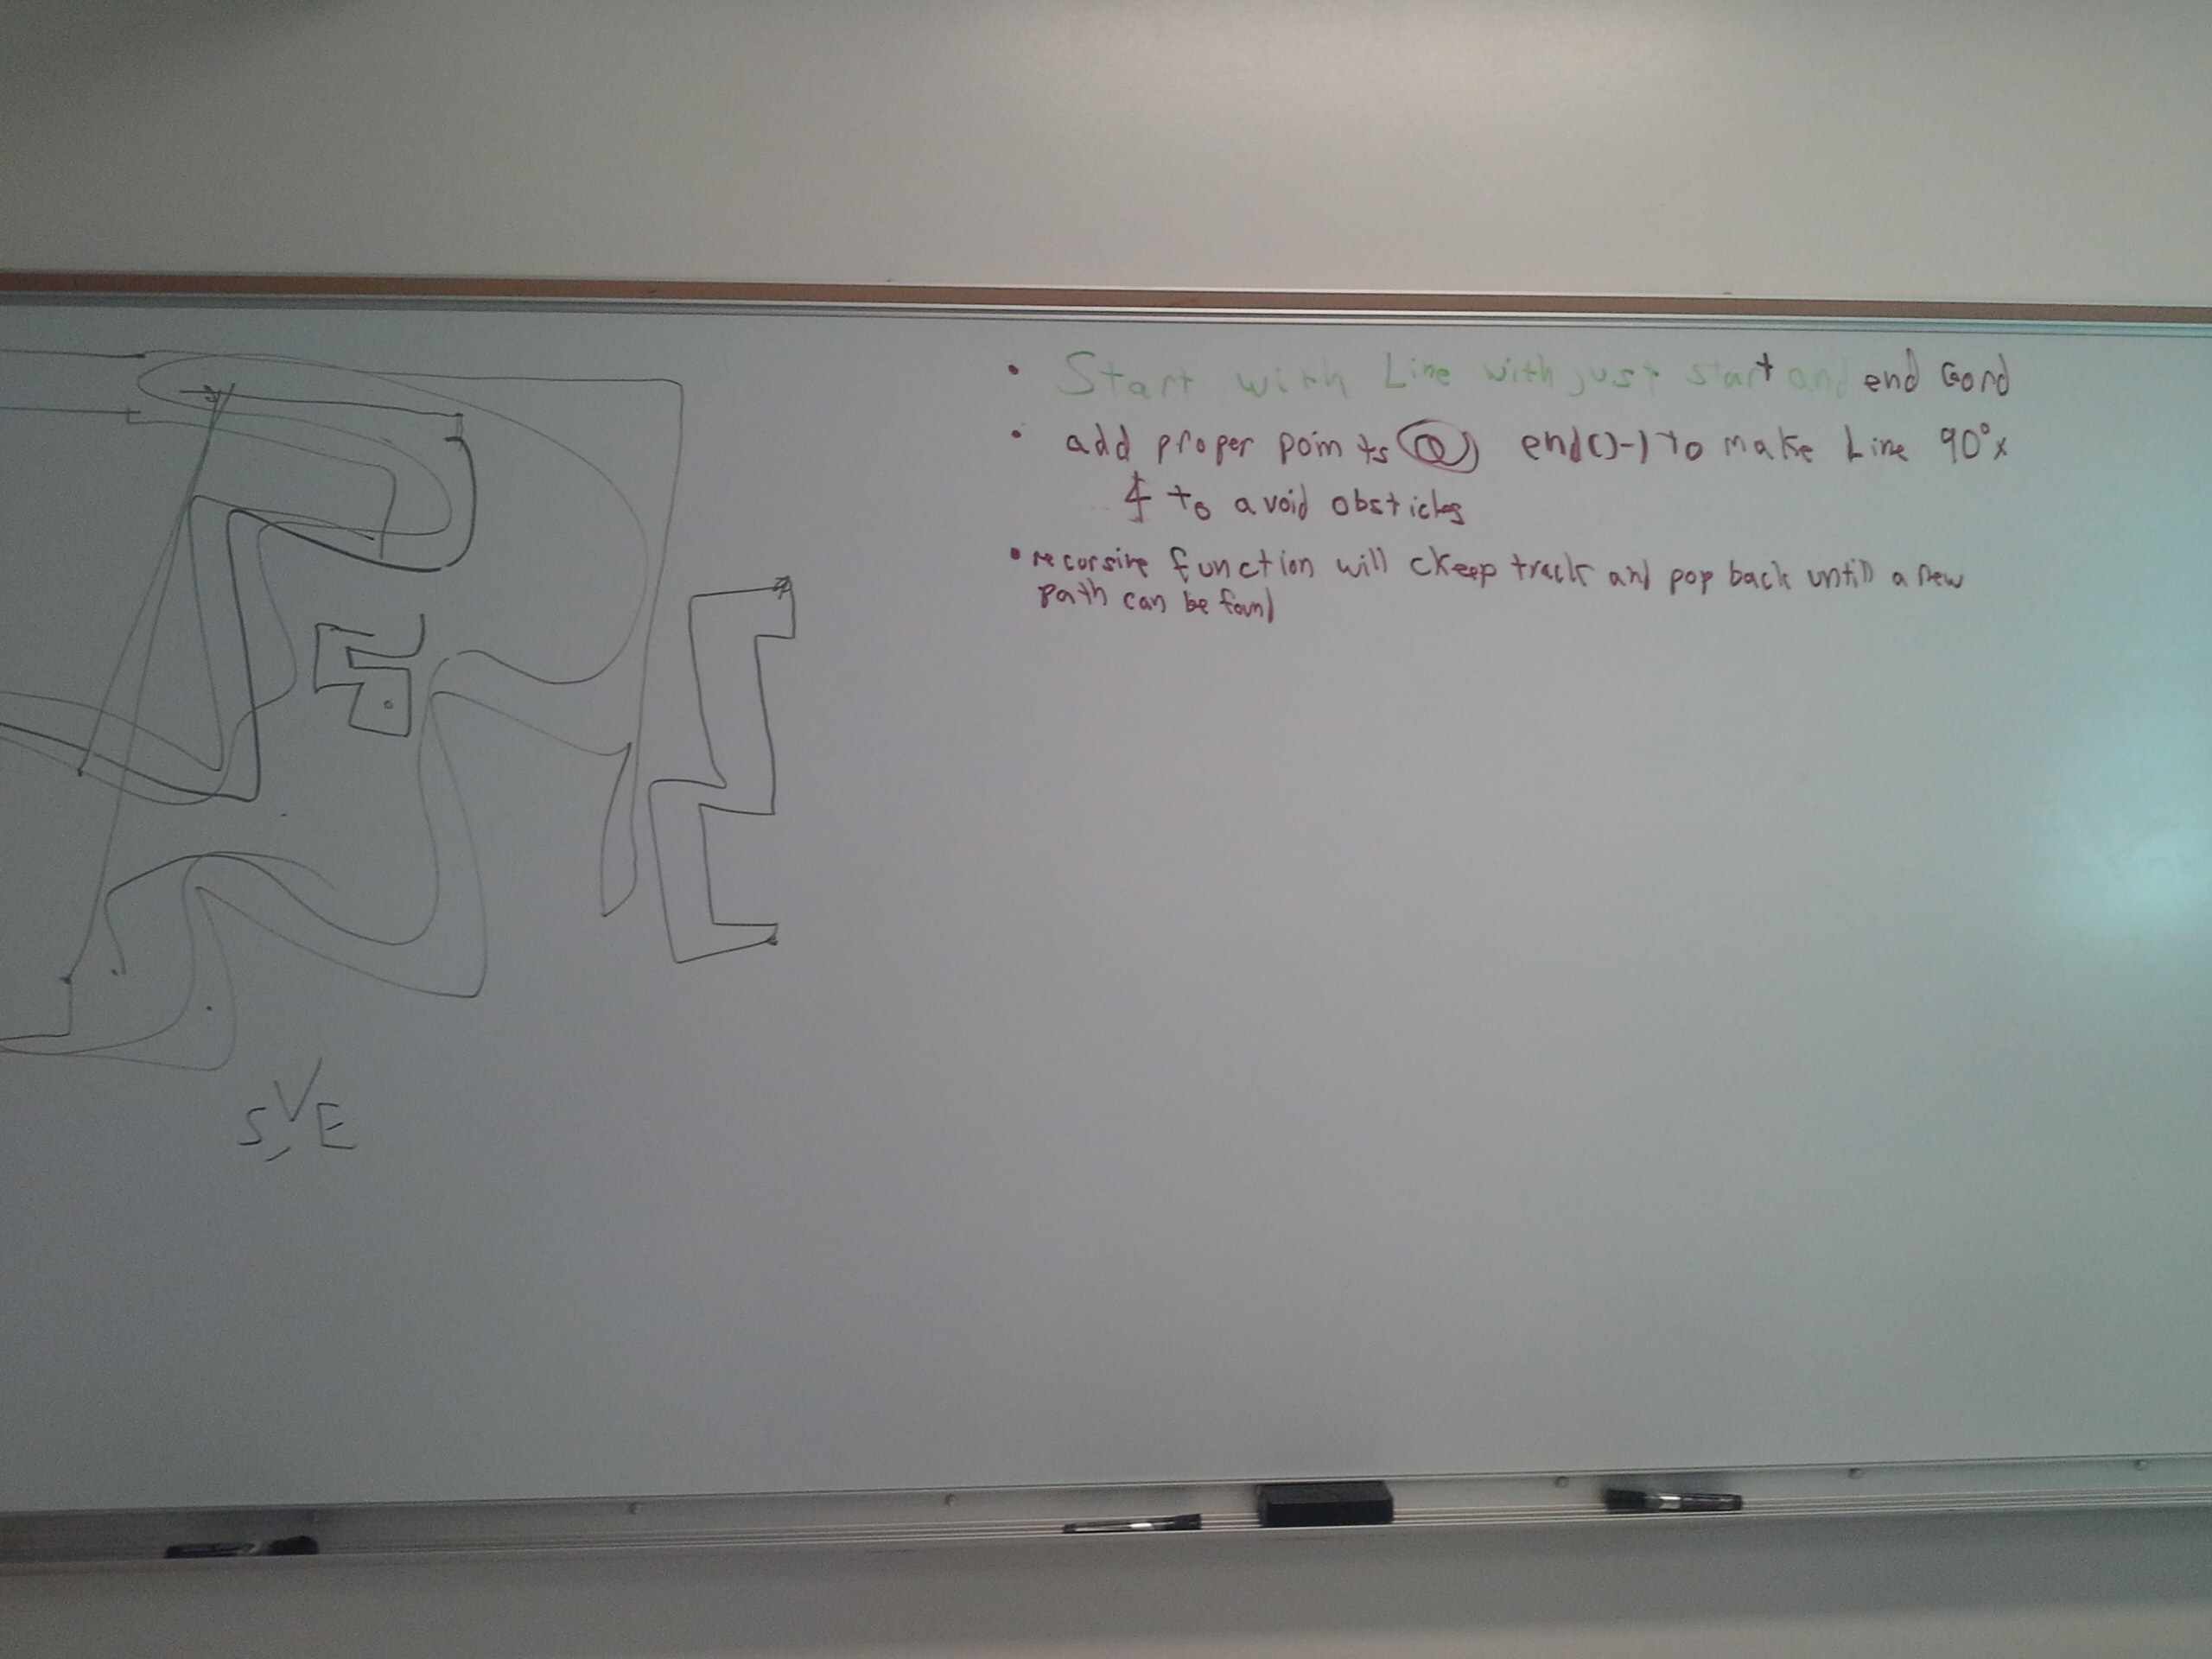 • Start with Line with just start and end Cord
• add proper points @ end()-1 to make Line 90°x
& to avoid obsticles
• recursive function will ckeep track and pop back until a new
path can be found
S,VE